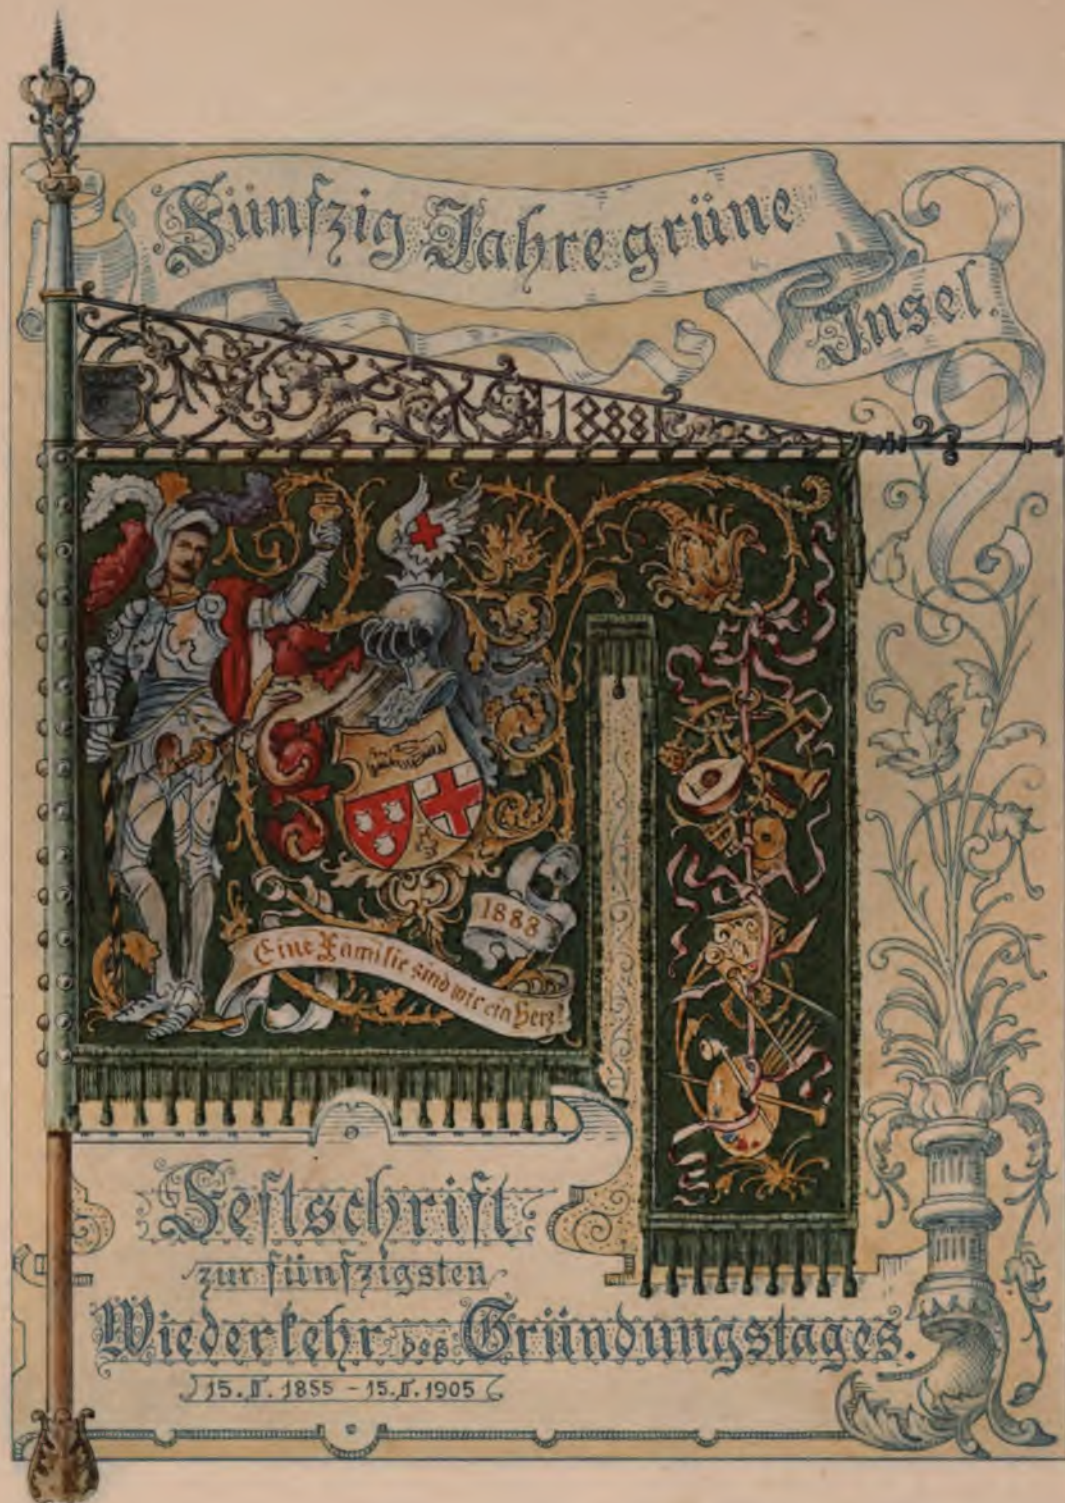 Fünfzig Jahre grüne
Insel.
1888
1883
Eine Familie sind wir ein Herz!
Festschrift
zur fünfzigsten
Wiederkehr des Gründungstages.
15. II. 1855 – 15. II. 1905